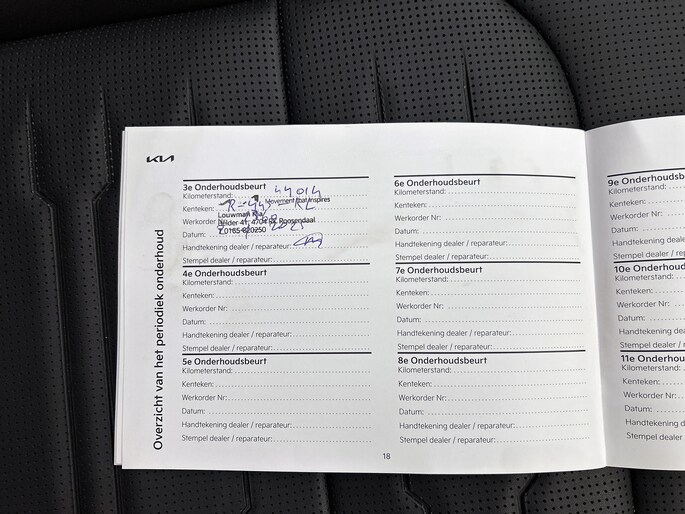 KIA
Overzicht van het periodiek onderhoud
3e Onderhoudsbeurt
Kilometerstand: 44014
Movement that inspires
Kenteken:
Louwman Kia
Werkorder
Roosendaal
Datum:
T.0165-820250
Handtekening dealer / reparateur:
Stempel dealer / reparateur:
4e Onderhoudsbeurt
Kilometerstand:
Kenteken:
Werkorder Nr:
Datum:
Handtekening dealer / reparateur:
Stempel dealer / reparateur:
5e Onderhoudsbeurt
Kilometerstand:
Kenteken:
Werkorder Nr:
Datum:
Handtekening dealer / reparateur:
Stempel dealer / reparateur:
6e Onderhoudsbeurt
Kilometerstand:
Kenteken:
Werkorder Nr:
Datum:
Handtekening dealer / reparateur:
Stempel dealer / reparateur:
7e Onderhoudsbeurt
Kilometerstand:
Kenteken:
Werkorder Nr:
Datum:
Handtekening dealer / reparateur:
Stempel dealer / reparateur:
8e Onderhoudsbeurt
Kilometerstand:
Kenteken:
Werkorder Nr:
Datum:
Handtekening dealer / reparateur:
Stempel dealer / reparateur:
18
9e Onderhoudsb
Kilometerstand:
Kenteken:
Werkorder Nr:
Datum:
Handtekening dealer /
Stempel dealer / r
10e Onderhoud
Kilometerstand:
Kenteken:
Werkorder Nr:
Datum:
Handtekening dealer
Stempel dealer /
11e Onderhou
Kilometerstand:
Kenteken:
Werkorder Nr:
Datum:
Handtekening de
Stempel dealer